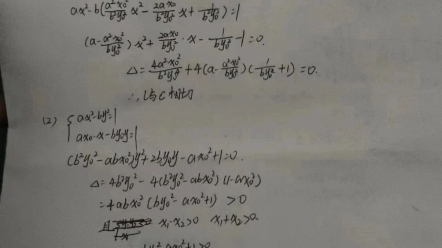 ax²-b(a²x₀²/b²y₀² x²-2ax₀/b²y₀² x+1/b²y₀²)=1
(a-a²x₀²/by₀²)x²+2ax₀/by₀²·x-1/by₀²-1=0.
Δ=4a²x₀²/b²y₀⁴+4(a-a²x₀²/by₀²)(1/by₀²+1)=0.
∴l与C相切
(2) {ax²-by²=1
ax₀·x-by₀y=1
(b²y₀²-abx₀²)y²+2by₀y-ax₀²+1=0.
Δ=4b²y₀²-4(b²y₀²-abx₀²)(1-ax₀²)
=4abx₀²(by₀²-ax₀²+1)>0
x₁·x₂>0 x₁+x₂>0